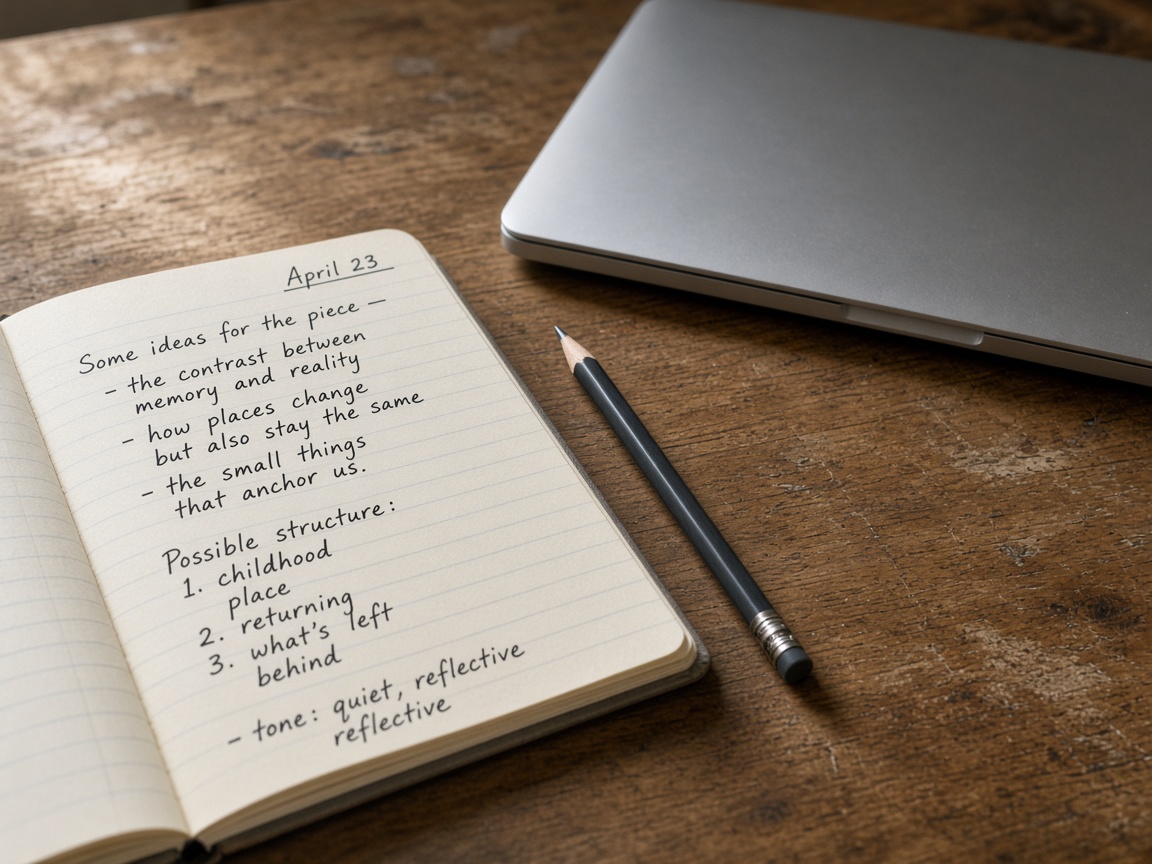 April 23
Some ideas for the piece —
- the contrast between
memory and reality
- how places change
but also stay the same
- the small things
that anchor us.
Possible structure:
1. childhood
place
2. returning
3. what's left
behind
- tone: quiet, reflective
reflective